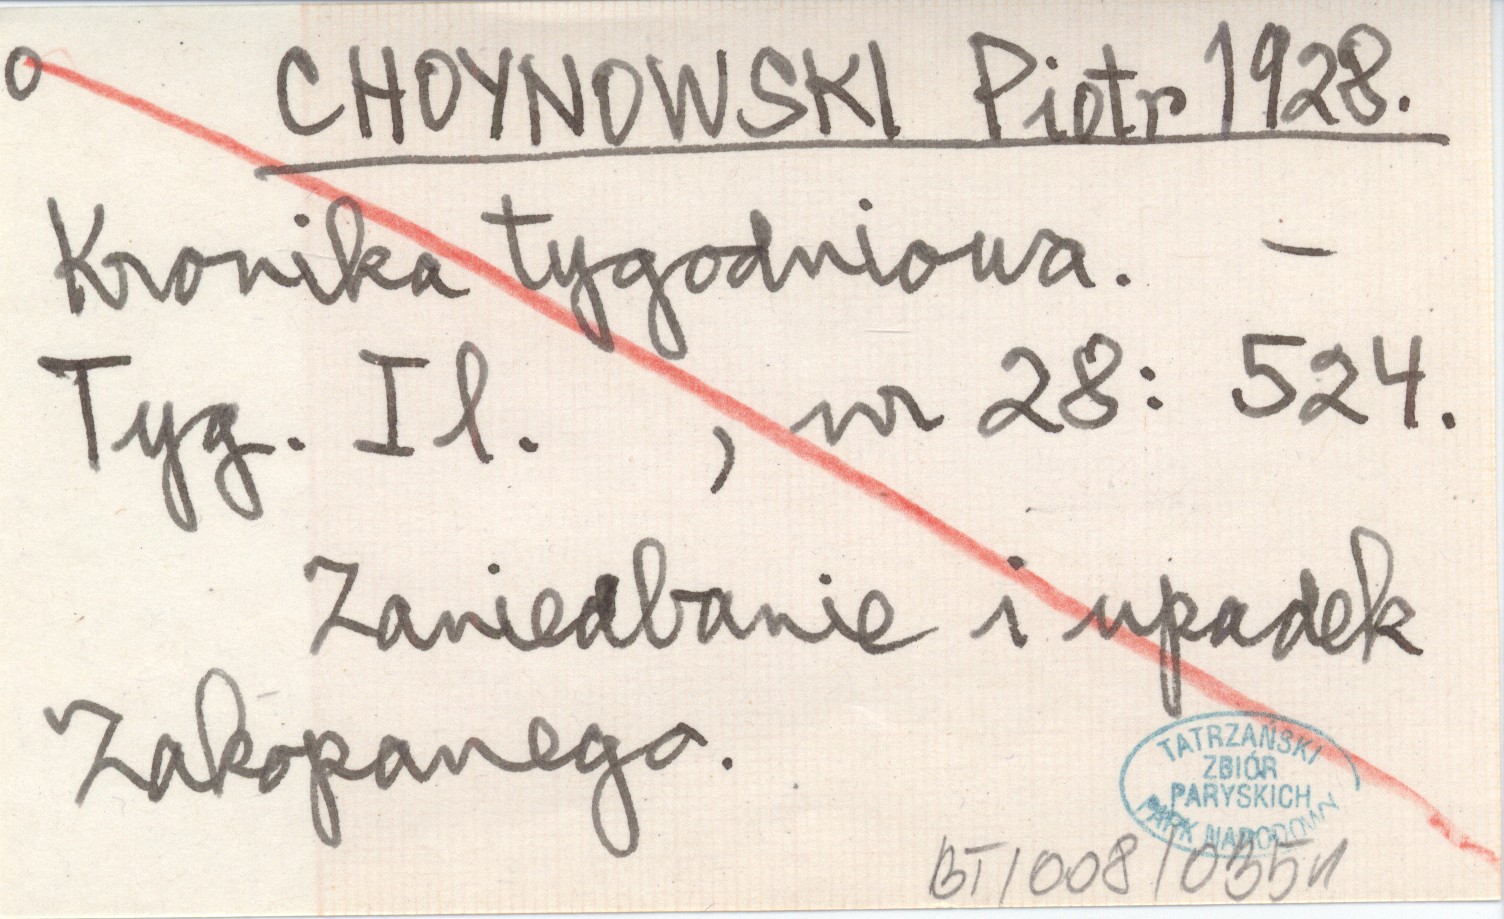 o CHOYNOWSKI Piotr 1928.
Kronika tygodniowa. –
Tyg. Il. , nr 28: 524.
Zaniedbanie i upadek
Zakopanego.
TATRZAŃSKI
ZBIÓR
PARYSKICH
PARK NARODOWY
BT/008/